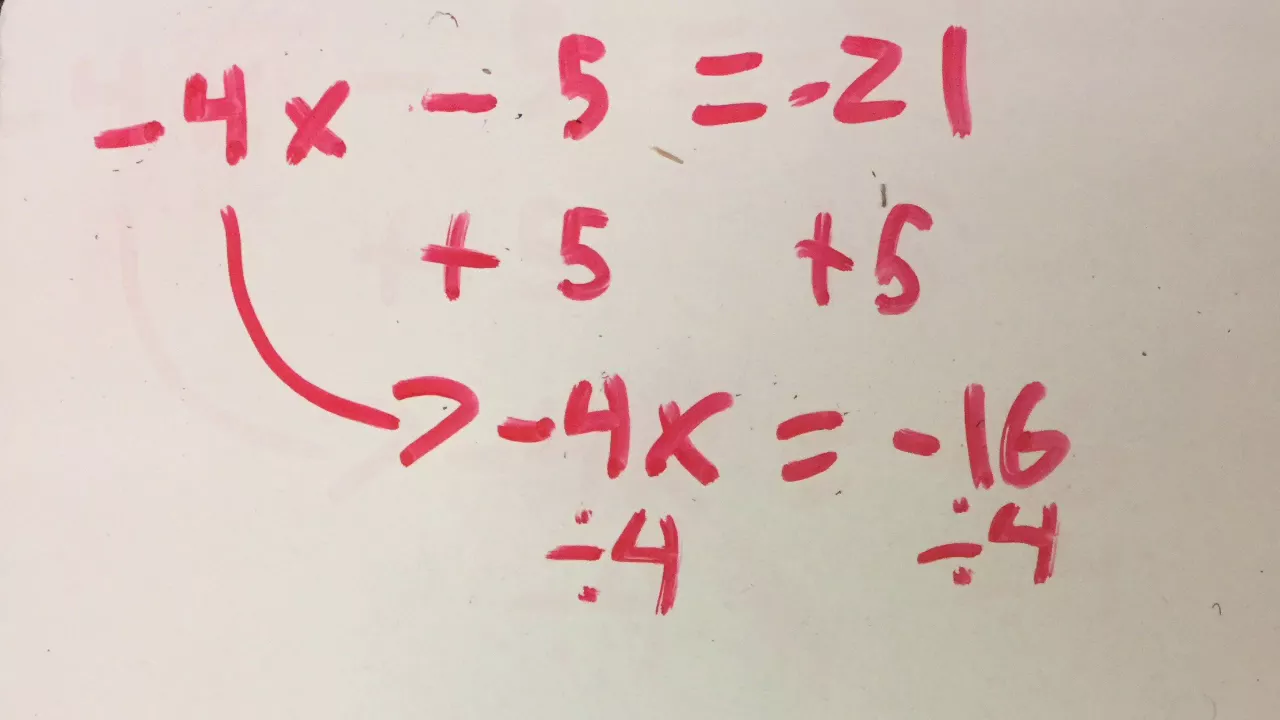 -4x - 5 = -21
+ 5 +5
-4x = -16
÷4 ÷4